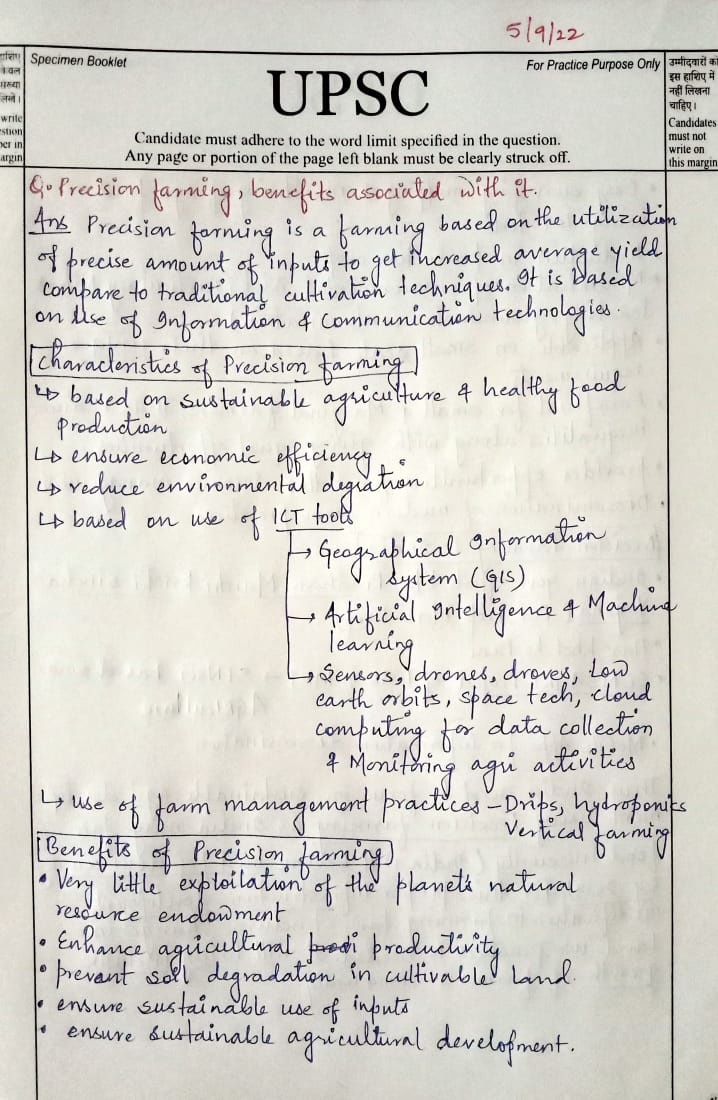 5/9/22
Specimen Booklet
For Practice Purpose Only
UPSC
Candidate must adhere to the word limit specified in the question.
Any page or portion of the page left blank must be clearly struck off.
write
argin
उम्मीदवारों को
इस हाशिए में
नहीं लिखना
चाहिए।
Candidates
must not
write on
this margin
Q. Precision farming, benefits associated with it.
Ans Precision farming is a farming based on the utilization
of precise amount of inputs to get increased average yield
compare to traditional cultivation techniques. It is based
on use of Information & Communication technologies.
Characteristics of Precision farming
↳ based on sustainable agriculture & healthy food
production
↳ ensure economic efficiency
↳ reduce environmental degration
↳ based on use of ICT tools
→ Geographical Information
System (GIS)
→ Artificial Intelligence & Machine
learning
→ Sensors, drones, droves, Low
earth orbits, space tech, cloud
computing for data collection
& Monitoring agri activities
↳ use of farm management practices - Drips, hydroponics
Vertical farming
Benefits of Precision farming
• Very little exploilation of the planet's natural
resource endowment
• Enhance agricultural productivity
• prevant soil degradation in cultivable Land.
• ensure sustainable use of inputs
• ensure sustainable agricultural development.